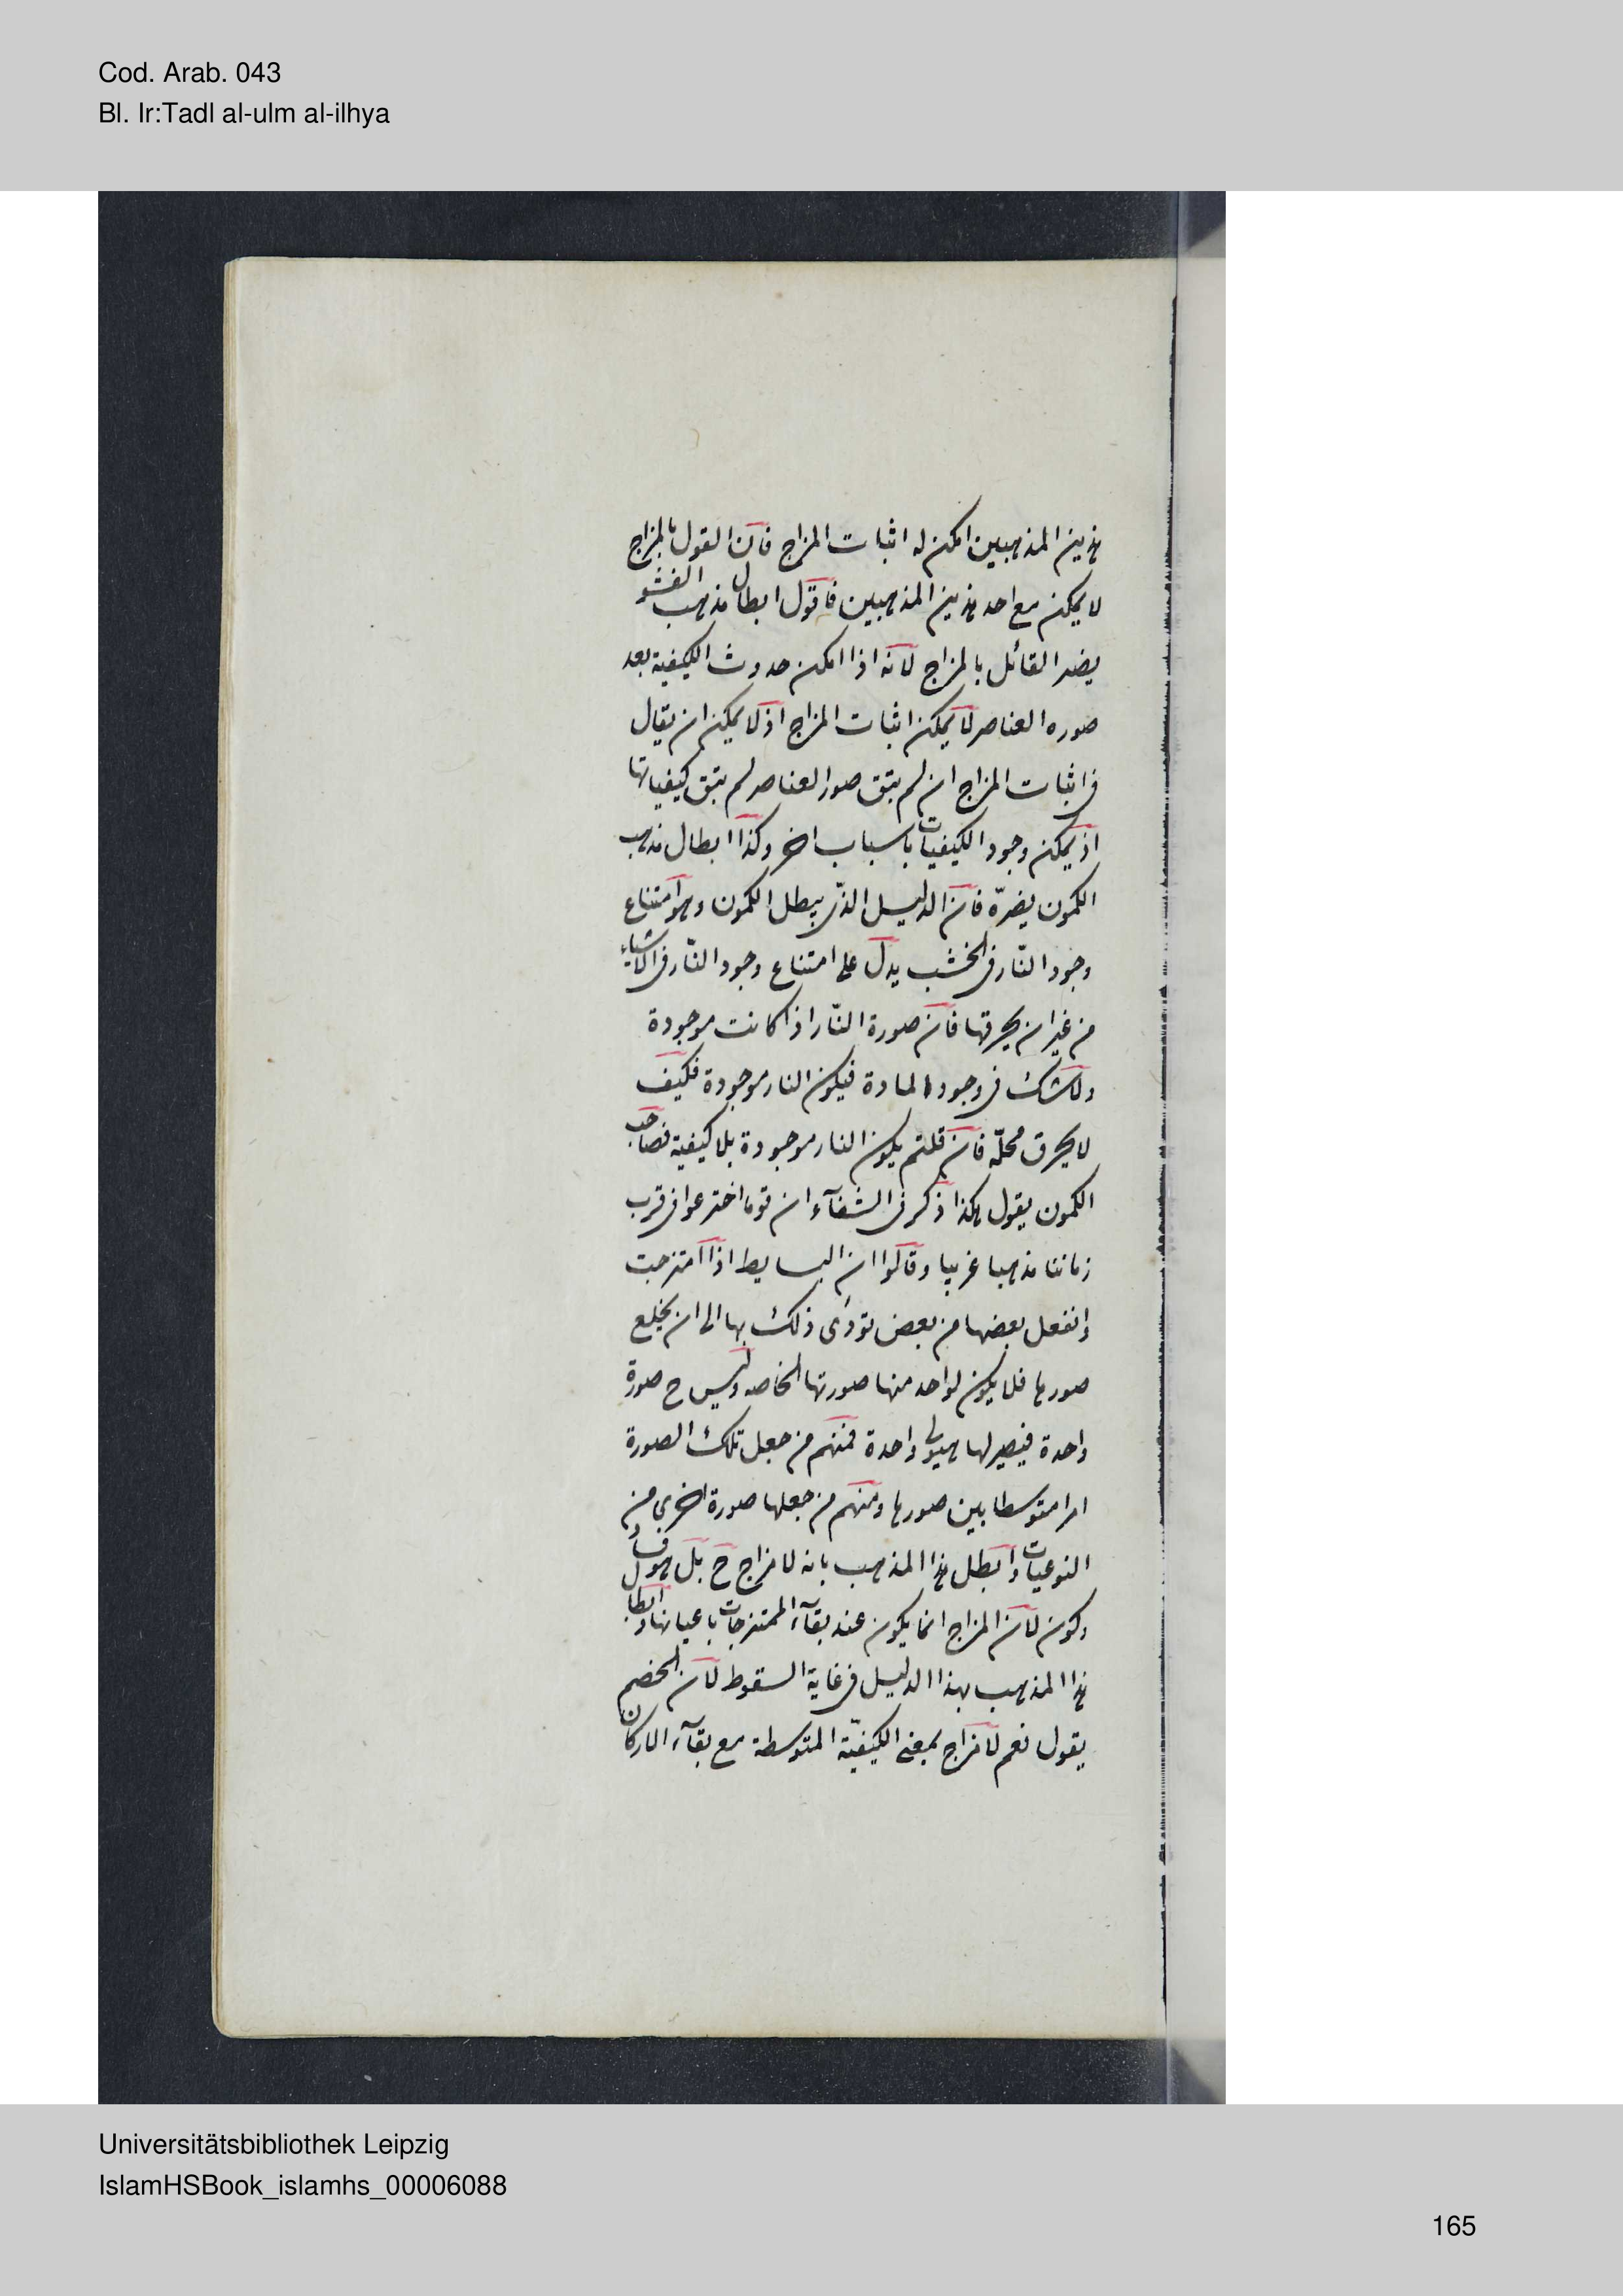 Cod. Arab. 043
Bl. Ir:Tadl al-ulm al-ilhya
هذين المذهبين امكن له اثبات المزاج فان القول بالمزاج
لا يمكن مع احد هذين المذهبين فاقول ابطال مذهب الفشو
يضر القائل بالمزاج لانه اذا امكن حدوث الكيفية بعد
صوره العناصر لا يمكن اثبات المزاج اذ لا يمكن ان يقال
فى اثبات المزاج ان لم يبق صور العناصر لم يبق كيفياتها
اذ يمكن وجود الكيفيات باسباب اخر وكذا ابطال مذهب
الكمون يضرّه فان الدليل الذى يبطل الكمون وهو امتناع
وجود النّار فى الخشب يدل على امتناع وجود النّار فى الاشياء
من غير ان يحرقها فان صورة النّار اذا كانت موجودة
ولا شك فى وجود المادة فيكون النار موجودة فكيف
لا يحرق محلّه فان قلتم يكون النار موجودة بلا كيفية فصاحب
الكمون يقول هكذا ذكر فى الشفآء ان قوما اخترعوا فى قرب
زماننا مذهبا غريبا وقالوا ان البسايط اذا امتزجت
وانفعل بعضها من بعض تودى ذلك بها الى ان يخلع
صورها فلا يكون لواحد منها صورتها الخاصه وليس ح صورة
واحدة فيصير لها هيولى واحدة فمنهم من جعل تلك الصورة
امرا متوسطا بين صورها ومنهم من جعلها صورة اخرى من
النوعيات وابطل هذا المذهب بانه لا مزاج ح بل هو فساد
وكون لان المزاج انما يكون عند بقآء الممتزجات باعيانها وابطال
هذا المذهب بهذا الدليل فى غاية السقوط لان الخصم
يقول نعم لا مزاج بمعنى الكيفيّة المتوسطة مع بقآء الاركان
Universitätsbibliothek Leipzig
IslamHSBook_islamhs_00006088
165